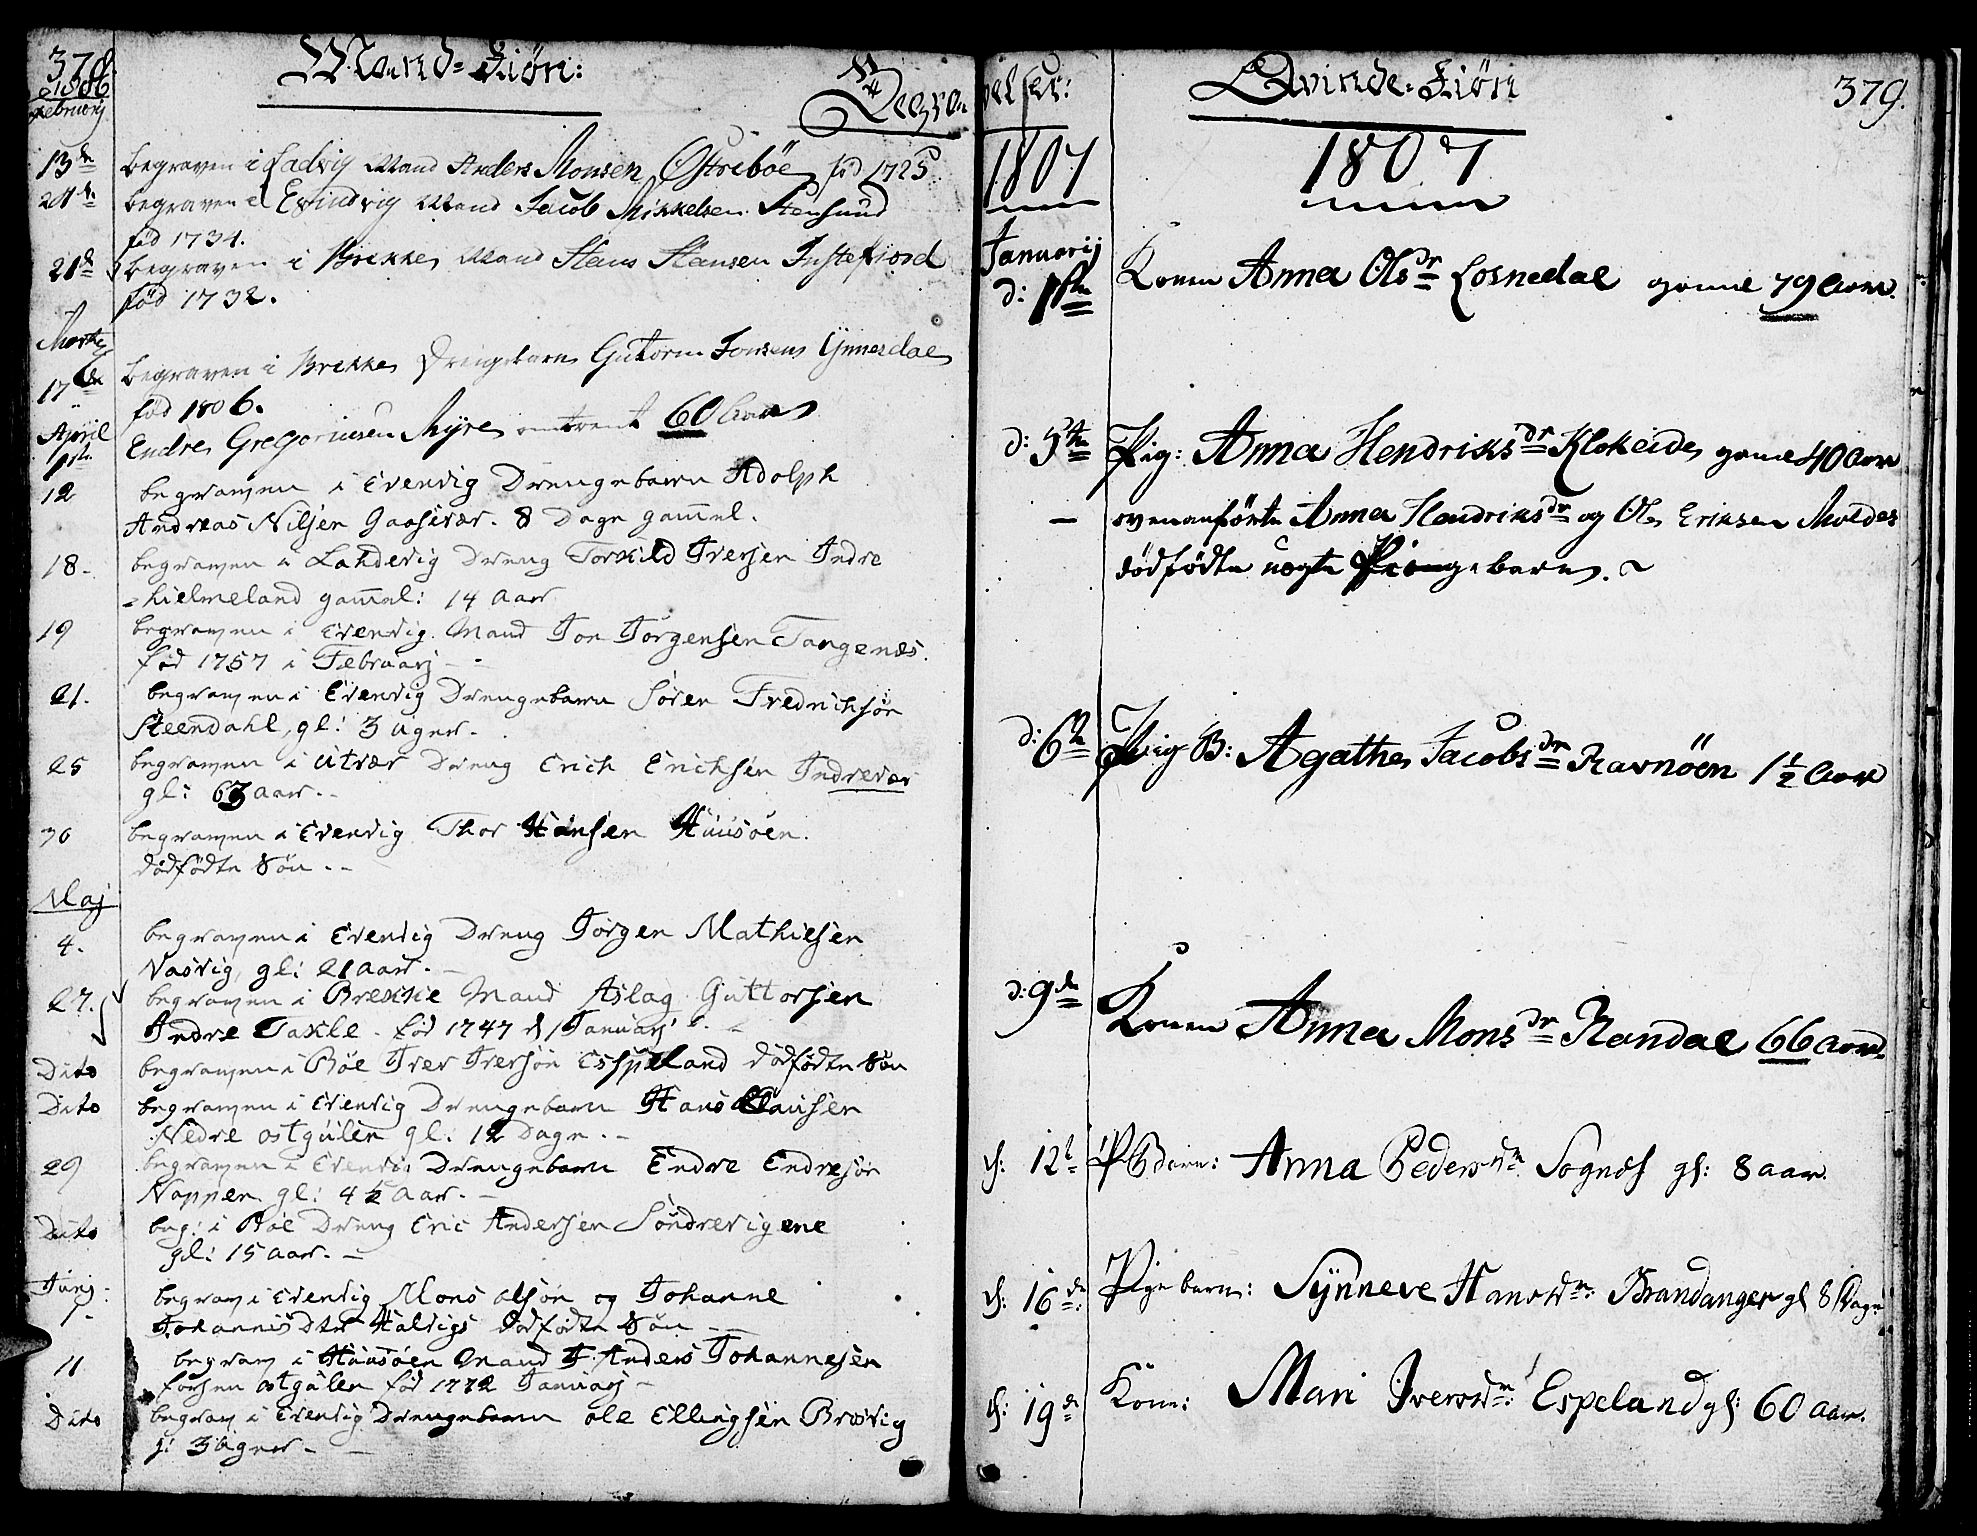 378
1806
February
Mand-Kiøn:
Begra-
13de begraven i Ladvig Mand Anders Monsen Østrebøe fød 1725
begraven i Evindvig Mand Jacob Mikkelsen Steensund
fød 1734.
21de begraven i Brekke Mand Hans Hansen Instefiord
fød 1732.
Martij
17de begraven i Brekke Drengebarn Gutorm Jonsen Ynnesdal
fød 1806.
April
1ste Endre Gregoriusen Myre omtrent 60 Aar
12 begraven i Evenvig Drengebarn Adolph
Andreas Nilsen Gaasevær. 8 Dage gammel.
18. begraven i Lahdevig Dreng Torkild Iversen Indre
hielmeland gammel: 14 Aar
19 begraven i Evenvig. Mand Jon Jørgensen Tangenæs.
fød 1757 i Februarij
21. begraven i Evenvig Drengebarn Søren Fredrichsøn
Steendahl, gl: 3 uger.
25 begraven i Utvær Dreng Erich Erichsen Indrevær
gl: 63 aar.
30 begraven i Evenvig Thor Hansen Huusøen.
dødfødte Søn.
Maj
4. begraven i Evenvig Dreng Jørgen Mathiesen
Vasvig, gl: 21 aar.
27. begraven i Brekke Mand Aslag Guttorsen
Indre Takle. fød 1747 d 1 Januarj
Dito begraven i Bøe Iver Iversøn Espeland dødfødte Søn
Dito begraven i Evenvig Drengebarn Hans Clausen
Nedre ostgulen gl: 12 Dage.
29 begraven i Evenvig Drengebarn Endre Endresøn
Noppen gl: 4½ Aar.
Dito beg: i Bøe Dreng Eric Andersen Søndrevigene
gl: 15 aar.
Junj:
1. begrav i Evenvig Mons olsøn og Johanne
Johannisdtr Haldigs dødfødte Søn
11 begrav i Huusøen Mand Anders Johannesen
ostgulen fød 1772 Januarj
Dito begrav i Evenvig Drengebarn ole Ellingsen Brosvig
3 uger.
velser:
Qvinde-Kiøn
379.
1807 1807
Januarij
d: 1ste Konen Anna Olsdr Losnedal gammel 79 Aar.
d: 5te Pig: Anna Hendriksdr Klokeide gammel 40 Aar
— ovenanførte Anna Hendriksdr og Ole Eriksen Molde
dødfødte uægte Pigebarn.
d: 6te Pig B: Agathe Jacobsdr Ravnøen 1½ Aar
d: 9de Konen Anna Monsdr Randal 66 Aar.
d: 12te P Barn: Anna Pedersdr Sognes gl: 8 aar.
d: 16de Pige barn: Synneve Hansdr: Brandanger gl 8 Dage
d: 19de Kone: Mari Iversdr: Espeland gl: 60 aar.